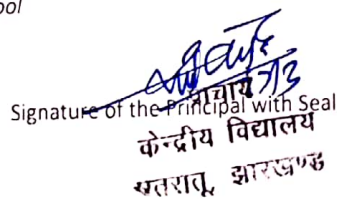 ool
प्राचार्य
Signature of the Principal with Seal
केन्द्रीय विद्यालय
पतरातू, झारखण्ड